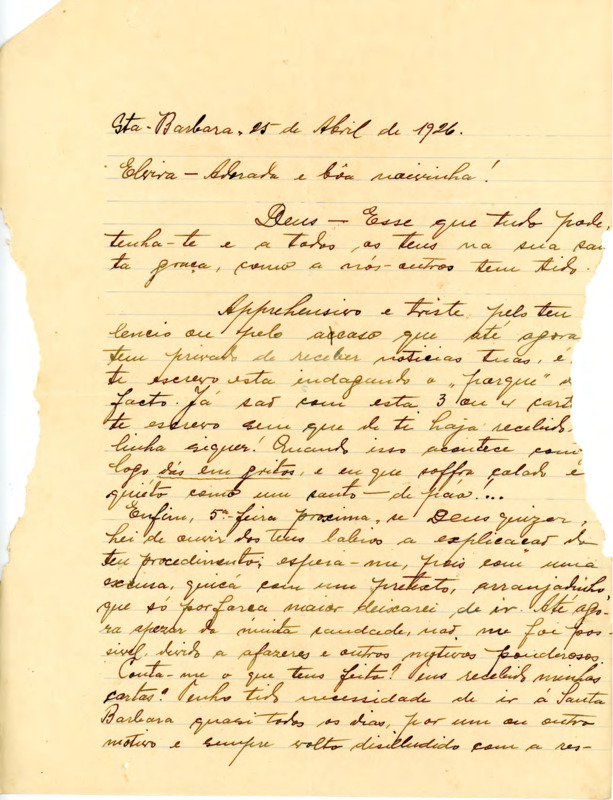 Sta. Barbara, 25 de Abril de 1926.
Elvira — Adorada e bôa noivinha!
Deus — Esse que tudo pode,
tenha-te e a todos os teus na sua san
ta graça, como a nós-outros tem tido.
Apprehensivo e triste, pelo teu
lencio ou pelo accaso que até agora
tem privado de receber noticias tuas, e
te escrevo esta indagando o "porque" d
facto. Já são com esta 3 ou 4 cart
te escrevo sem que de ti haja recebido
linha siquer! Quando isso acontece com
logo dás em gritos, e eu que soffra calado e
quiéto como um santo — de páo!...
Enfim, 5ª feira proxima, se Deus quizer,
hei de ouvir dos teus labios a explicação do
teu procedimento; espera-me, pois com uma
excusa, quiçá com um pretexto, arranjadinho,
que só por força maior deixarei de ir. Até ago-
ra apezar da muita saudade, não me foi pos-
sivel, devido a afazeres e outros motivos ponderosos.
Conta-me o que tens feito? ens recebido minhas
cartas? enho tido necessidade de ir á Santa
Barbara quasi todos os dias, por um ou outro
motivo e sempre volto disilludido com a res-